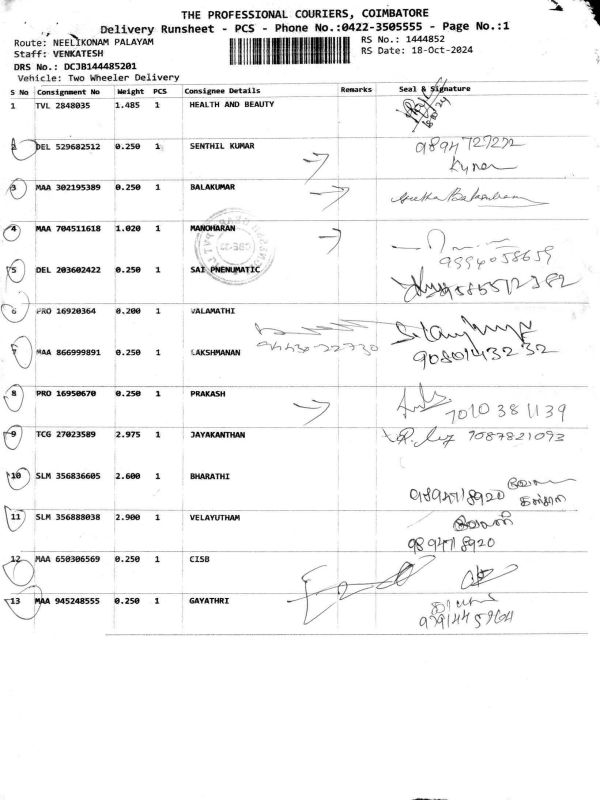 THE PROFESSIONAL COURIERS, COIMBATORE
Delivery Runsheet - PCS - Phone No.:0422-3505555 - Page No.:1
Route: NEELIKONAM PALAYAM
RS No.: 1444852
Staff: VENKATESH
RS Date: 18-Oct-2024
DRS No.: DCJB144485201
Vehicle: Two Wheeler Delivery
S No Consignment No Weight PCS Consignee Details Remarks Seal & Signature
1 TVL 2848035 1.485 1 HEALTH AND BEAUTY
2 DEL 529682512 0.250 1 SENTHIL KUMAR
Kumar
3 MAA 302195389 0.250 1 BALAKUMAR
4 MAA 704511618 1.020 1 MANOHARAN
9994058659
5 DEL 203602422 0.250 1 SAI PNENUMATIC
6 PRO 16920364 0.200 1 VALAMATHI
94430-22730
7 MAA 866999891 0.250 1 LAKSHMANAN 9080143232
8 PRO 16950670 0.250 1 PRAKASH
7010381139
9 TCG 27023589 2.975 1 JAYAKANTHAN 9087821093
10 SLM 356836605 2.600 1 BHARATHI
9894718920
11 SLM 356888038 2.900 1 VELAYUTHAM
9894718920
12 MAA 650306569 0.250 1 CISB
13 MAA 945248555 0.250 1 GAYATHRI